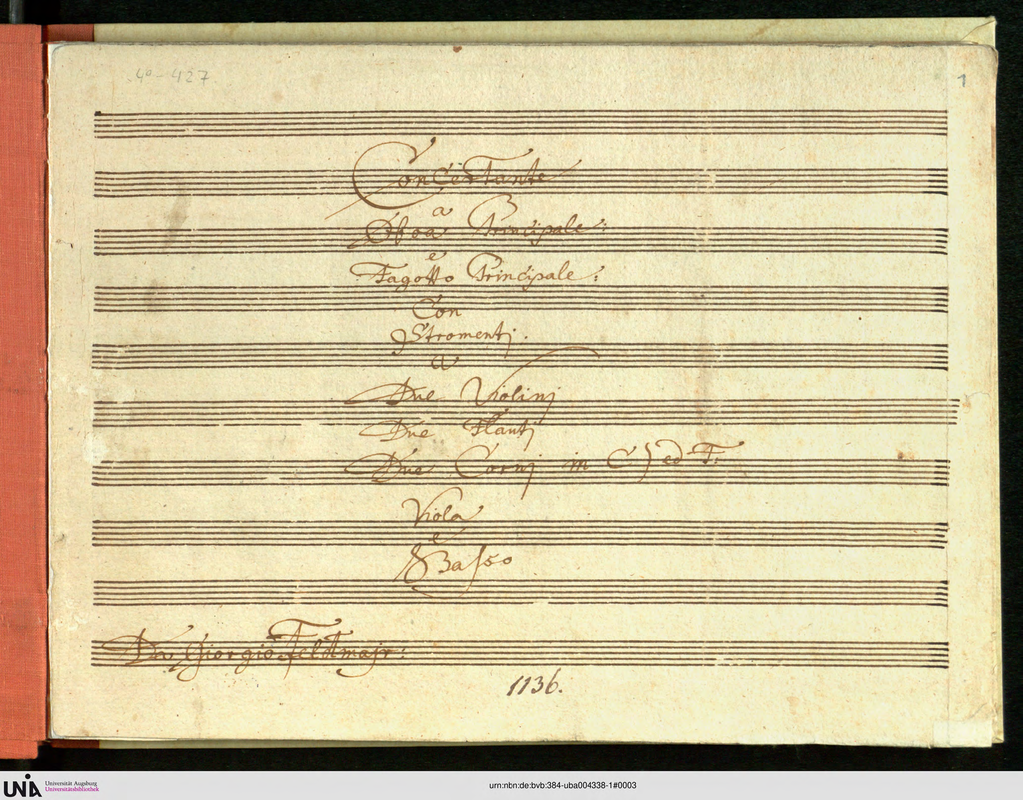 4° - 427
1
Concertante
a
Oboa Principale:
e
Fagotto Principale:
Con
Stromenti.
a
Due Violini
Due Flauti
Due Corni in C) ed F:
Viola
e
Basso
Da Giorgio Feldmajr:
1136.
UNIA Universität Augsburg
Universitätsbibliothek
urn:nbn:de:bvb:384-uba004338-1#0003